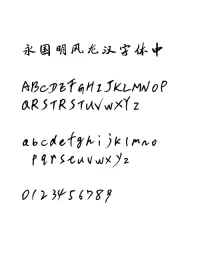 永国明风龙汉字体中
ABCDEFGHIJKLMNOP
QRSTRSTUVWXYZ
abcdefghijklmno
pqrseuvwxyz
0123456789